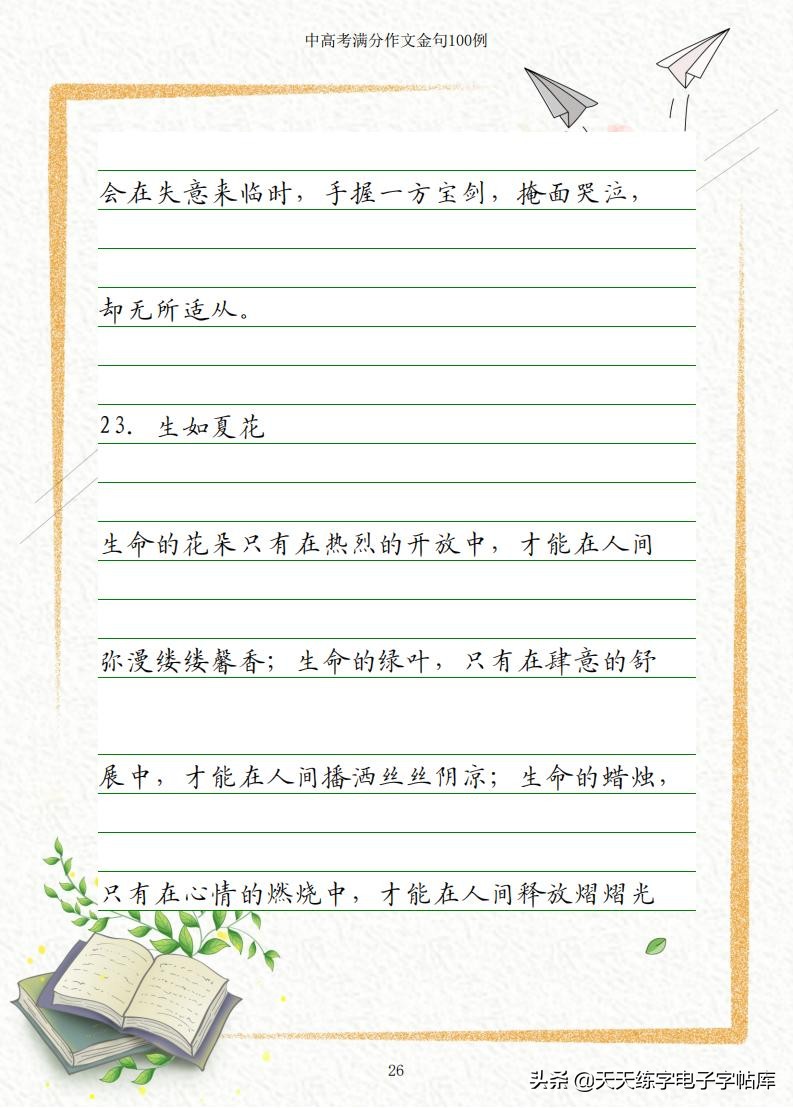 中高考满分作文金句100例
会在失意来临时，手握一方宝剑，掩面哭泣，
却无所适从。
23. 生如夏花
生命的花朵只有在热烈的开放中，才能在人间
弥漫缕缕馨香；生命的绿叶，只有在肆意的舒
展中，才能在人间播洒丝丝阴凉；生命的蜡烛，
只有在心情的燃烧中，才能在人间释放熠熠光
26
头条 @天天练字电子字帖库